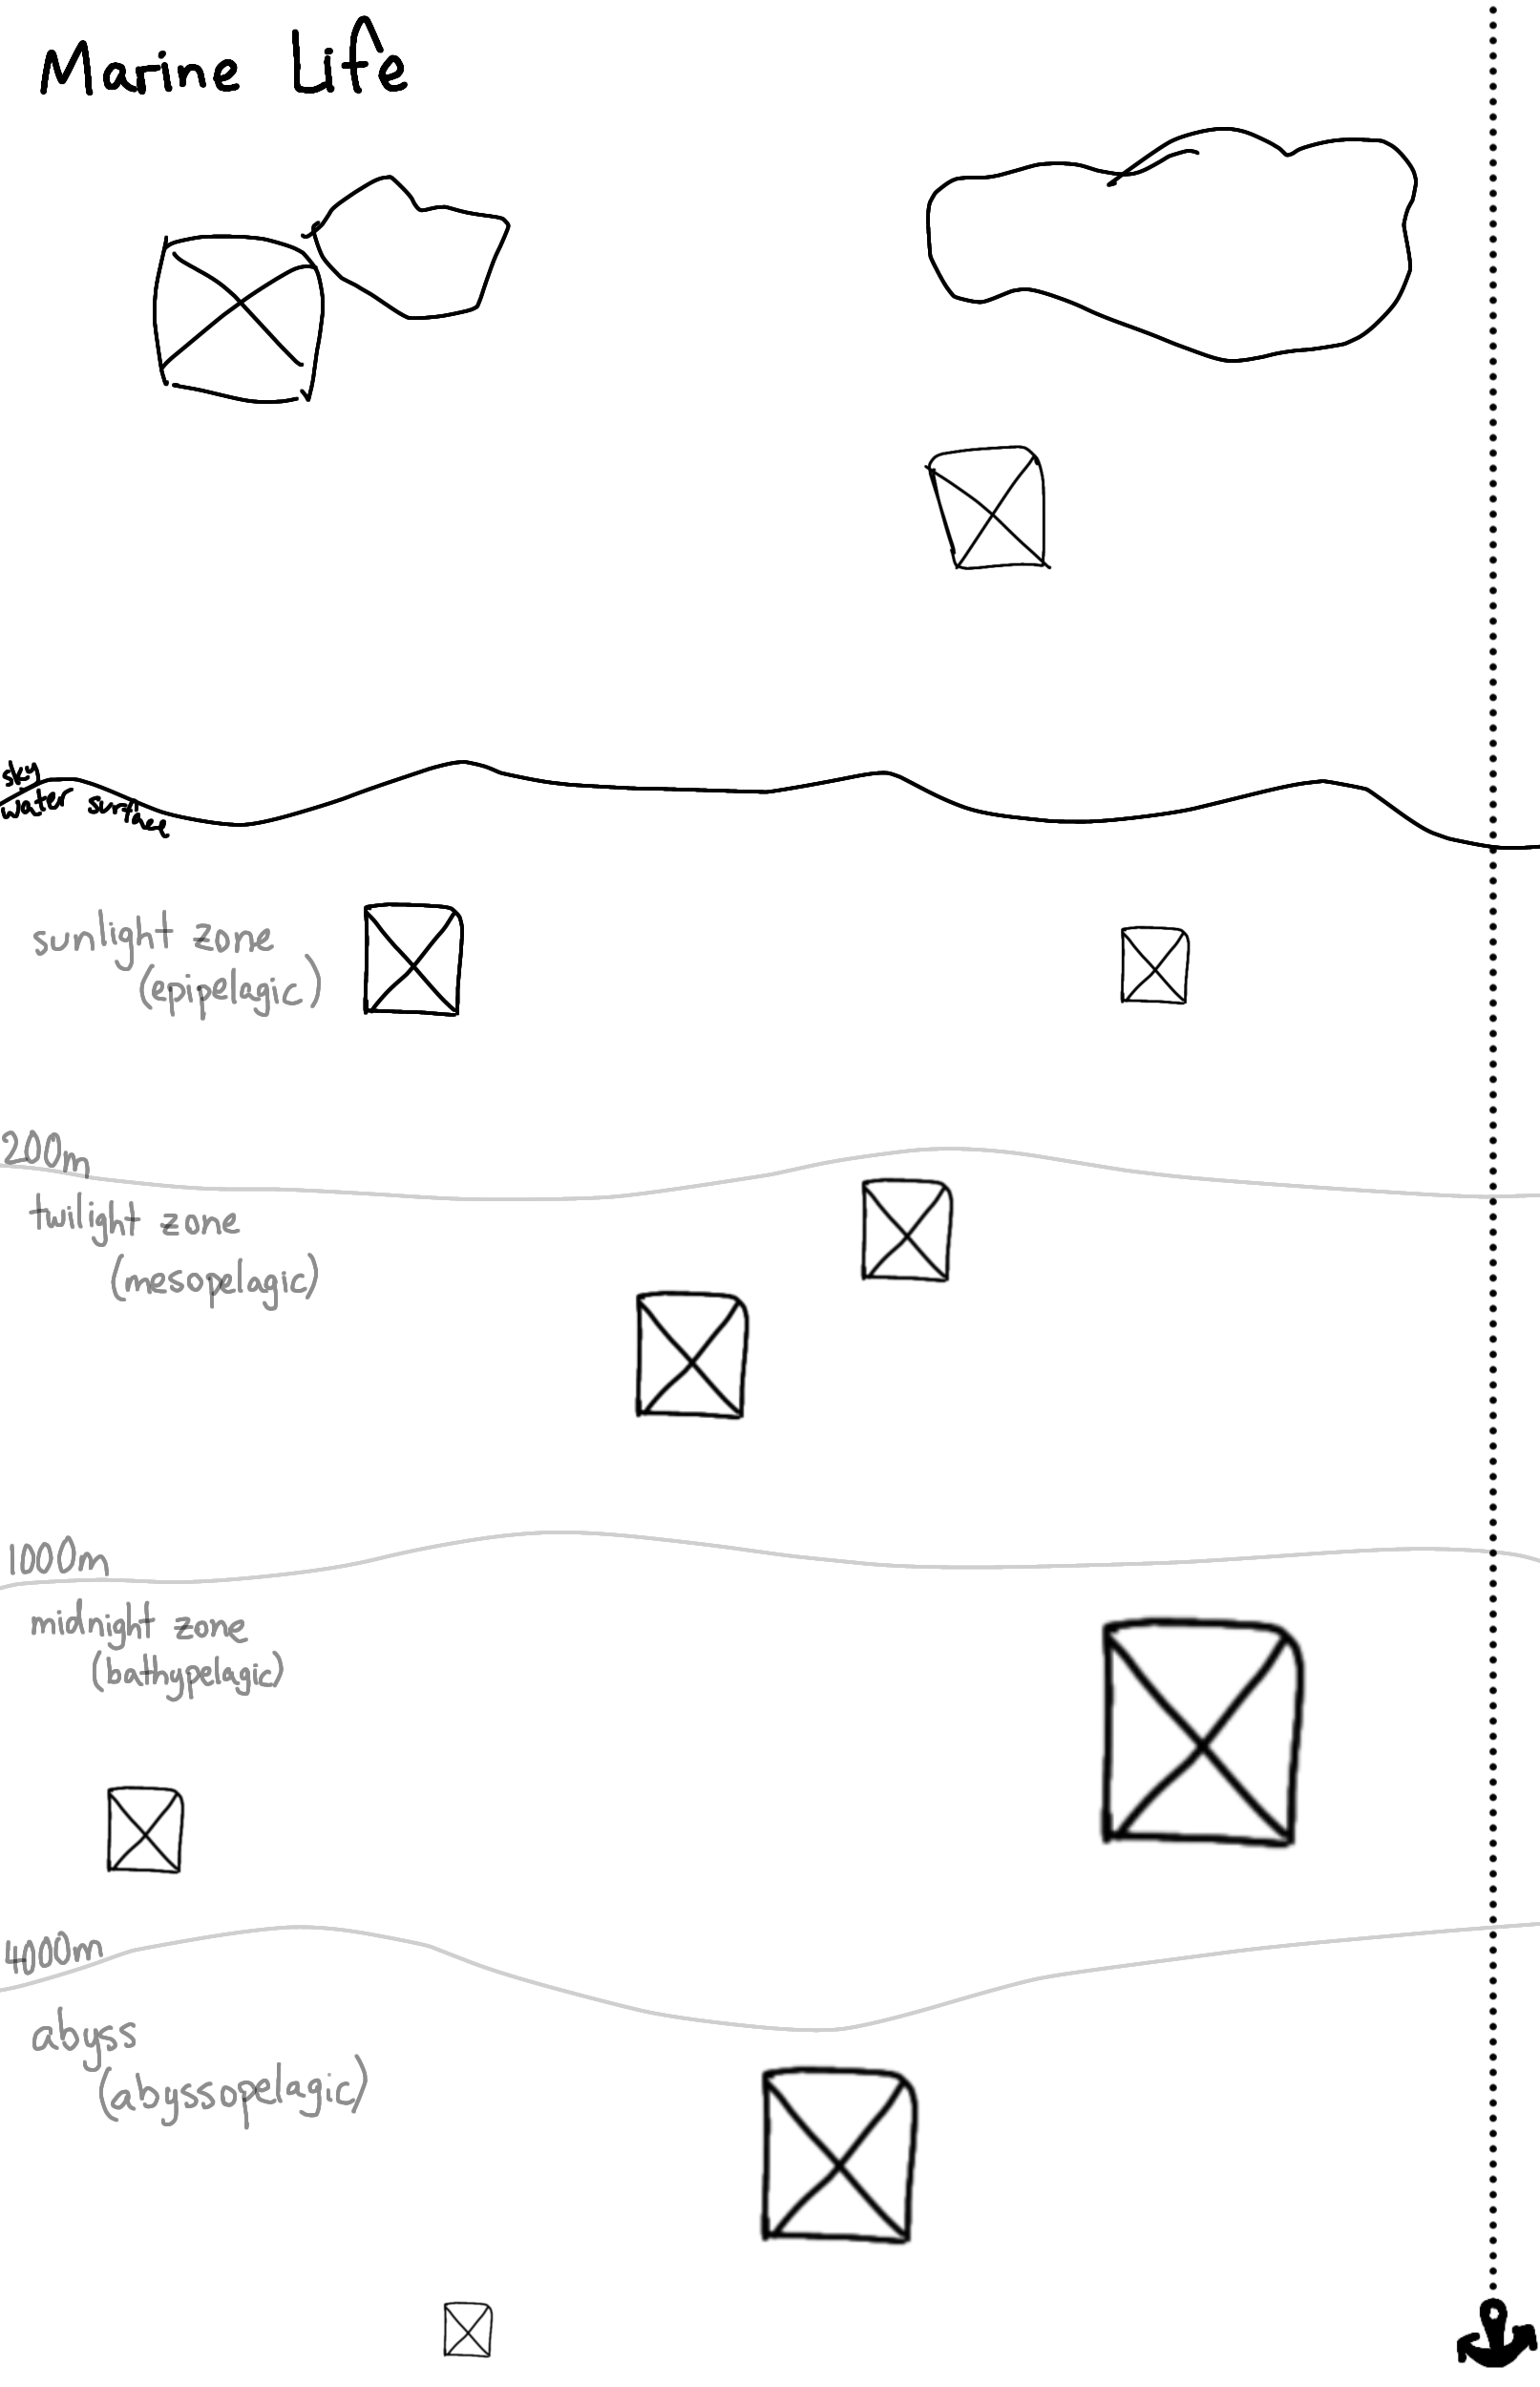 Marine Life
sky
water surface
sunlight zone
(epipelagic)
200m
twilight zone
(mesopelagic)
1000m
midnight zone
(bathypelagic)
4000m
abyss
(abyssopelagic)